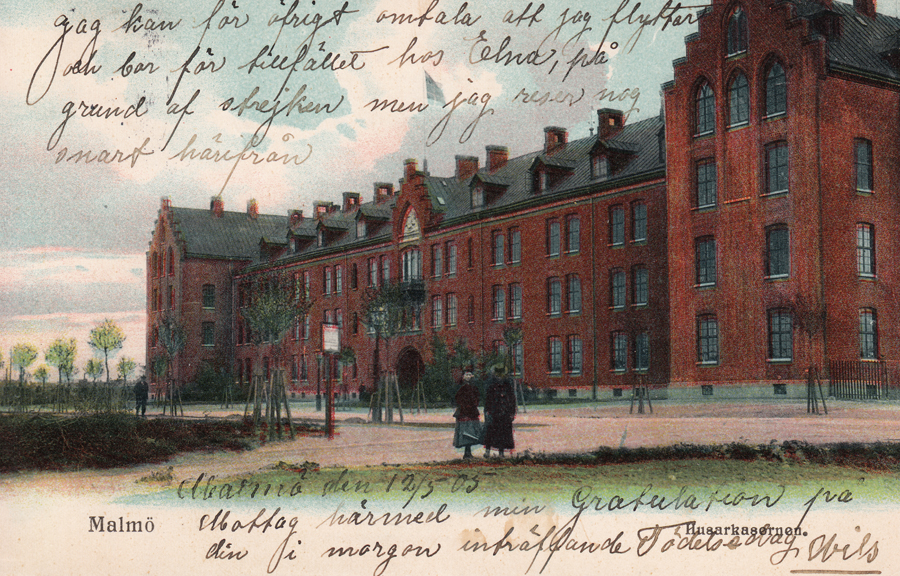 jag kan för öfrigt omtala att jag flyttar
och bor för tillfället hos Elna, på
grund af strejken men jag reser nog
snart härifrån
Malmö den 12/5 05
Malmö
Husarkasernen.
Mottag härmed min Gratulation på
din i morgon inträffande Födelsedag
Nils